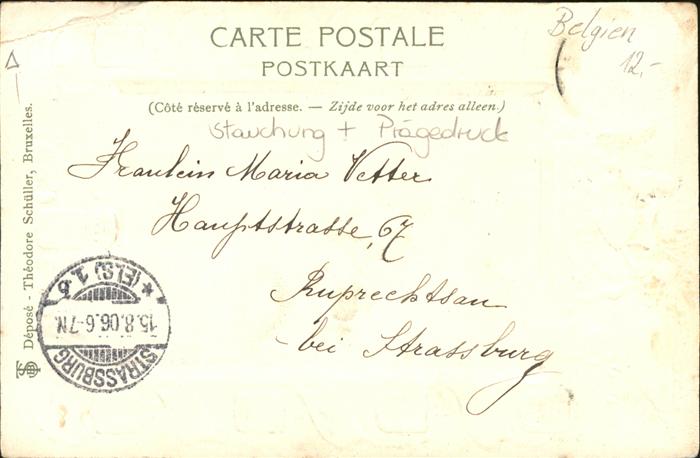 Belgien
12.-
CARTE POSTALE
POSTKAART
(Côté réservé à l'adresse. — Zijde voor het adres alleen.)
Stauchung + Prägedruck
Fraulein Maria Vetter
Hauptstrasse, 67
Ruprechtsau
bei Strassburg
Déposé - Théodore Schüller, Bruxelles.
STRASSBURG
15.8.06.6-7N.
* (ELS.) 1.b